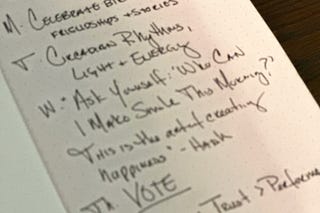 M. CELEBRATE BIG
FRIENDSHIPS + STORIES
T CIRCADIAN RHYTHMS,
LIGHT + ENERGY
W: "ASK YOURSELF: 'WHO CAN
I MAKE SMILE THIS MORNING?'
THIS IS THE ART OF CREATING
HAPPINESS" -
TH. VOTE
TRUST >